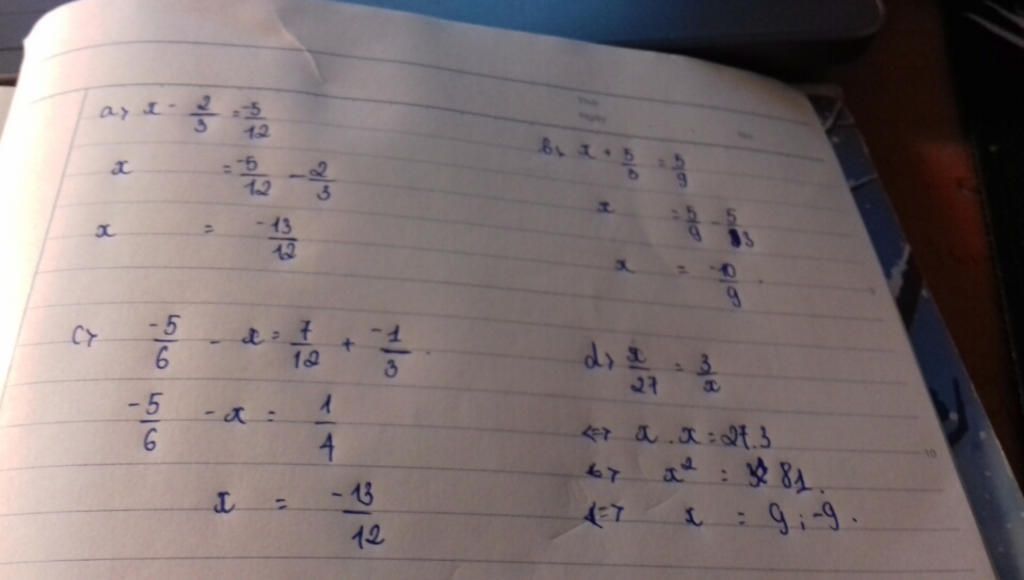 a) x - 2/3 = -5/12
x = -5/12 - 2/3
x = -13/12
b) x + 5/3 = 5/9
x = 5/9 - 5/3
x = -10/9
c) -5/6 - x = 7/12 + -1/3
-5/6 - x = 1/4
x = -13/12
d) x/27 = 3/x
<=> x . x = 27.3
<=> x² = 81.
<=> x = 9 ; -9.
Thứ
Ngày
No
10